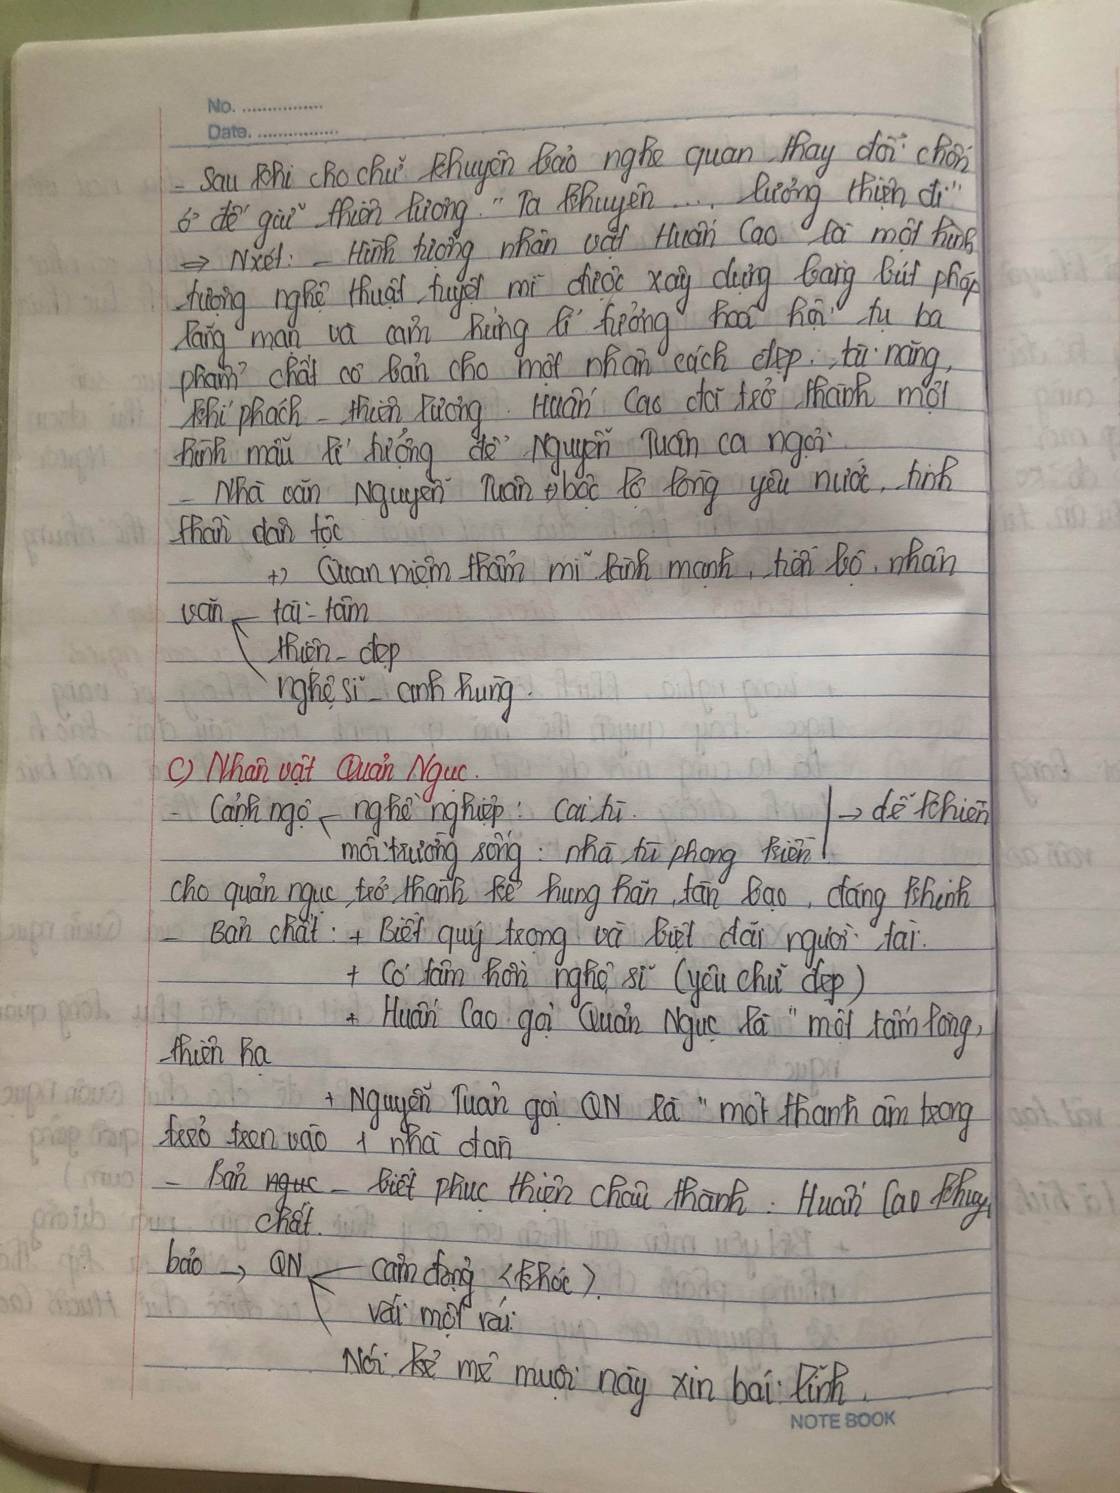 No. ................
Date. ................
- Sau khi cho chữ khuyên bảo nghe quan thay đổi chốn
ở để giữ thiên lương. "Ta khuyên .... lương thiện đi"
⇒ Nxét: - Hình tượng nhân vật Huấn Cao là một hình
tượng nghệ thuật tuyệt mĩ được xây dựng bằng bút pháp
lãng mạn và cảm hứng lí tưởng hoá hội tụ ba
phẩm chất cơ bản cho một nhân cách đẹp: tài năng,
khí phách - thiên lương. Huấn Cao đã trở thành một
hình mẫu lí tưởng để Nguyễn Tuân ca ngợi.
- Nhà văn Nguyễn Tuân +) bộc lộ lòng yêu nước, tinh
thần dân tộc
+) Quan niệm thẩm mĩ lành mạnh, tiến bộ, nhân
văn ← tài - tâm
thiện - đẹp
nghệ sĩ - anh hùng.
c) Nhân vật Quản Ngục.
- Cảnh ngộ ← nghề nghiệp: Cai tù.
môi trường sống: nhà tù phong kiến → dễ khiến
cho quản ngục trở thành kẻ hung hãn, tàn bạo, đáng khinh
- Bản chất: + Biết quý trọng và biệt đãi người tài.
+ Có tâm hồn nghệ sĩ (yêu chữ đẹp)
+ Huấn Cao gọi Quản Ngục là "một tấm lòng,
thiên hạ
+ Nguyễn Tuân gọi QN là "một thanh âm trong
trẻo xen vào 1 nhà đàn
- Bản ngục - biết phục thiện chân thành: Huấn Cao khuyên
chất.
bảo → QN ← cảm động <khóc>
vái một vái
Nói: kẻ mê muội này xin bái lĩnh.
NOTE BOOK